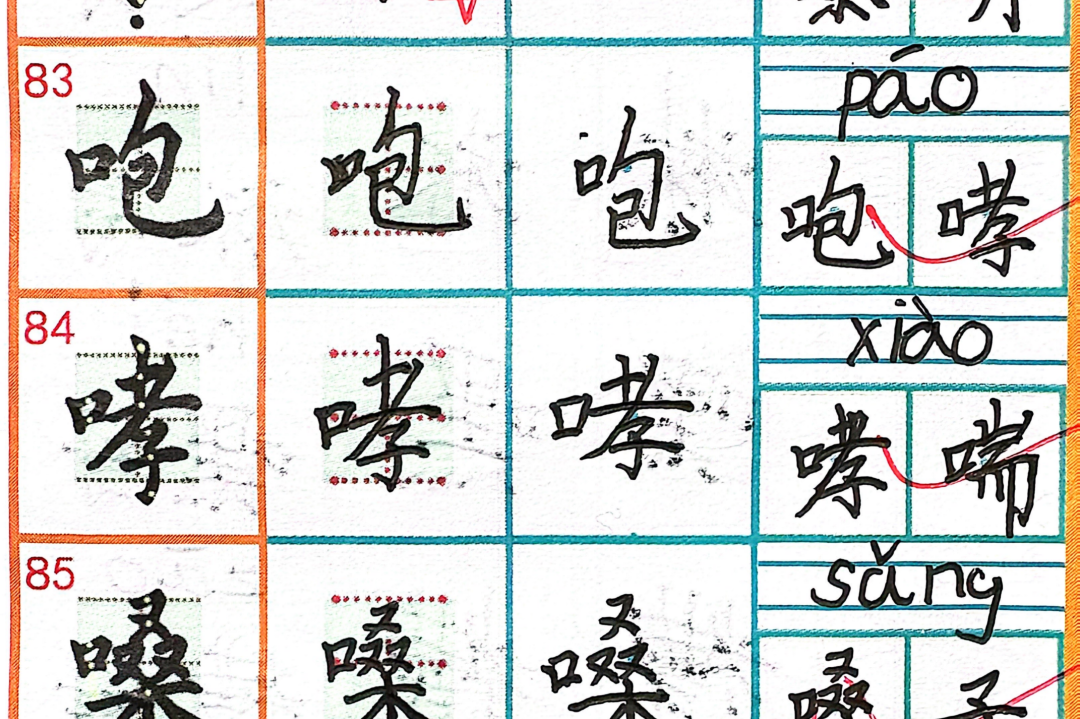 83 咆 咆 咆 páo
咆 哮
84 哮 哮 哮 xiào
哮 喘
85 嗓 嗓 嗓 sǎng
嗓